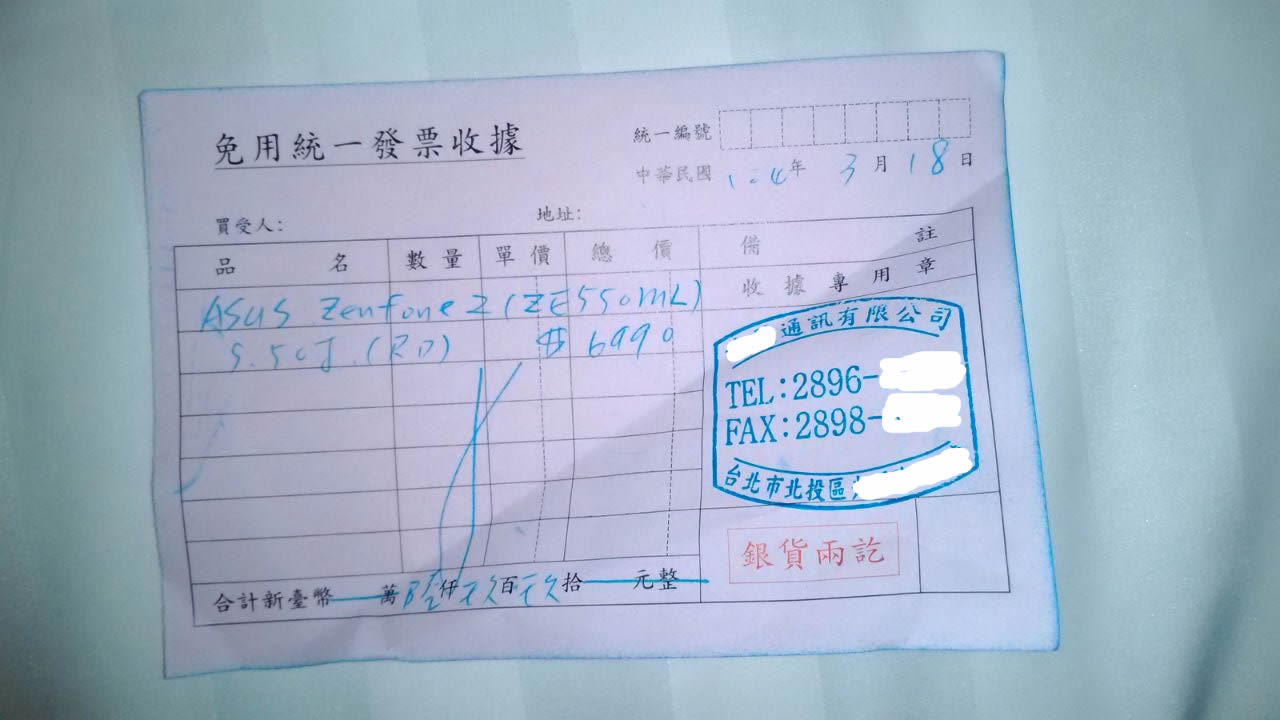 免用統一發票收據
統一編號
中華民國 104年 3月 18日
買受人: 地址:
品名 數量 單價 總價 備註
收據專用章
ASUS Zenfone 2 (ZE550ML)
5.5吋.(RD) $ 6990
通訊有限公司
TEL:2896-
FAX:2898-
台北市北投區大
銀貨兩訖
合計新臺幣 萬陸仟玖百玖拾 元整